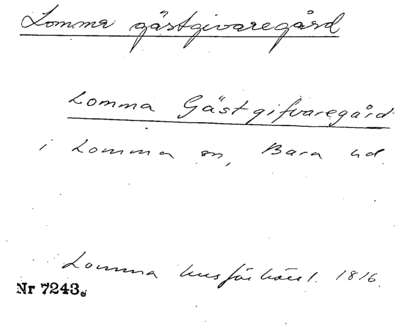 Lomma gästgivaregård
Lomma Gästgifvaregård
i Lomma sn, Bara hd.
Lomma husförhörsl. 1816.
Nr 7243.